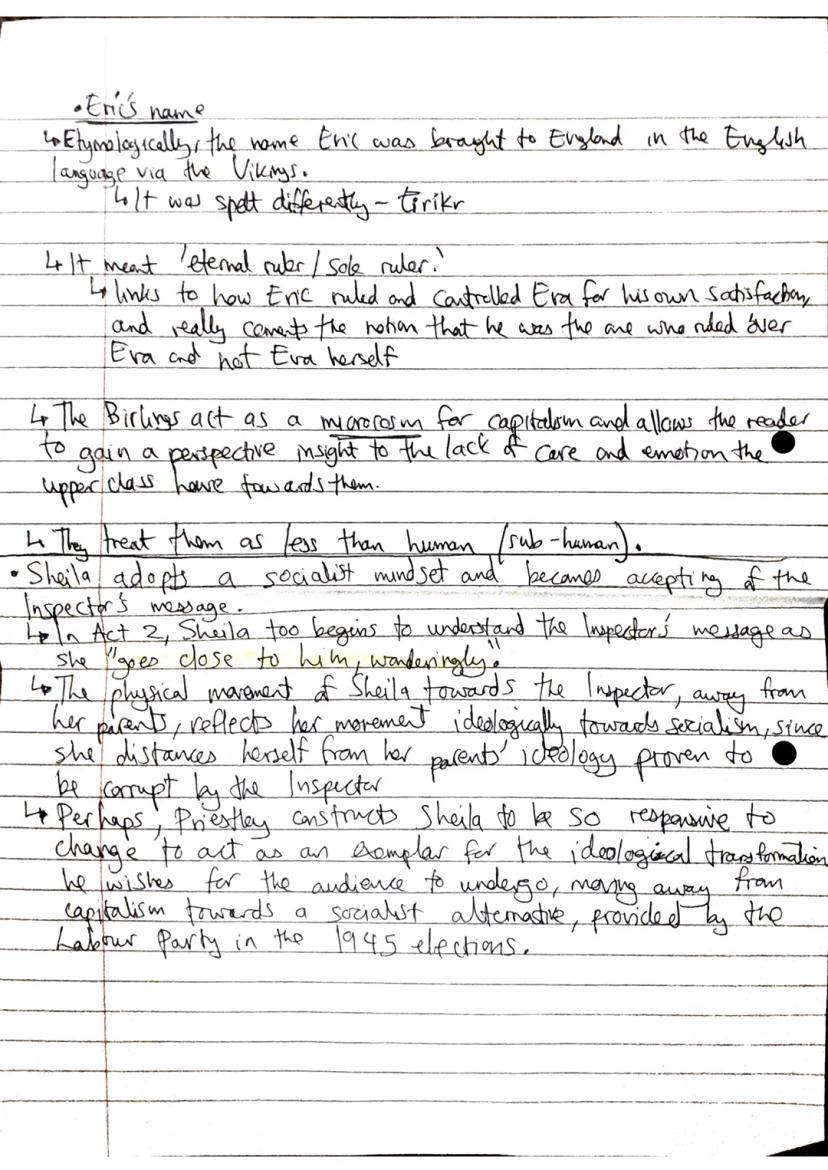 • Eric's name
↳ Etymologically, the name Eric was brought to England in the English
language via the Vikings.
↳ It was spelt differently – Eirikr
↳ It meant 'eternal ruler / sole ruler.'
↳ links to how Eric ruled and controlled Eva for his own satisfaction,
and really cements the notion that he was the one who ruled over
Eva and not Eva herself
↳ The Birlings act as a microcosm for capitalism and allows the reader
to gain a perspective insight to the lack of care and emotion the
upper class have towards them.
↳ They treat them as less than human (sub-human).
• Sheila adopts a socialist mindset and becomes accepting of the
Inspector's message.
↳ In Act 2, Sheila too begins to understand the Inspector's message as
she "goes close to him, wonderingly."
↳ The physical movement of Sheila towards the Inspector, away from
her parents, reflects her movement ideologically towards socialism, since
she distances herself from her parents' ideology proven to
be corrupt by the Inspector
↳ Perhaps, Priestley constructs Sheila to be so responsive to
change to act as an exemplar for the ideological transformation
he wishes for the audience to undergo, moving away from
capitalism towards a socialist alternative, provided by the
Labour Party in the 1945 elections.